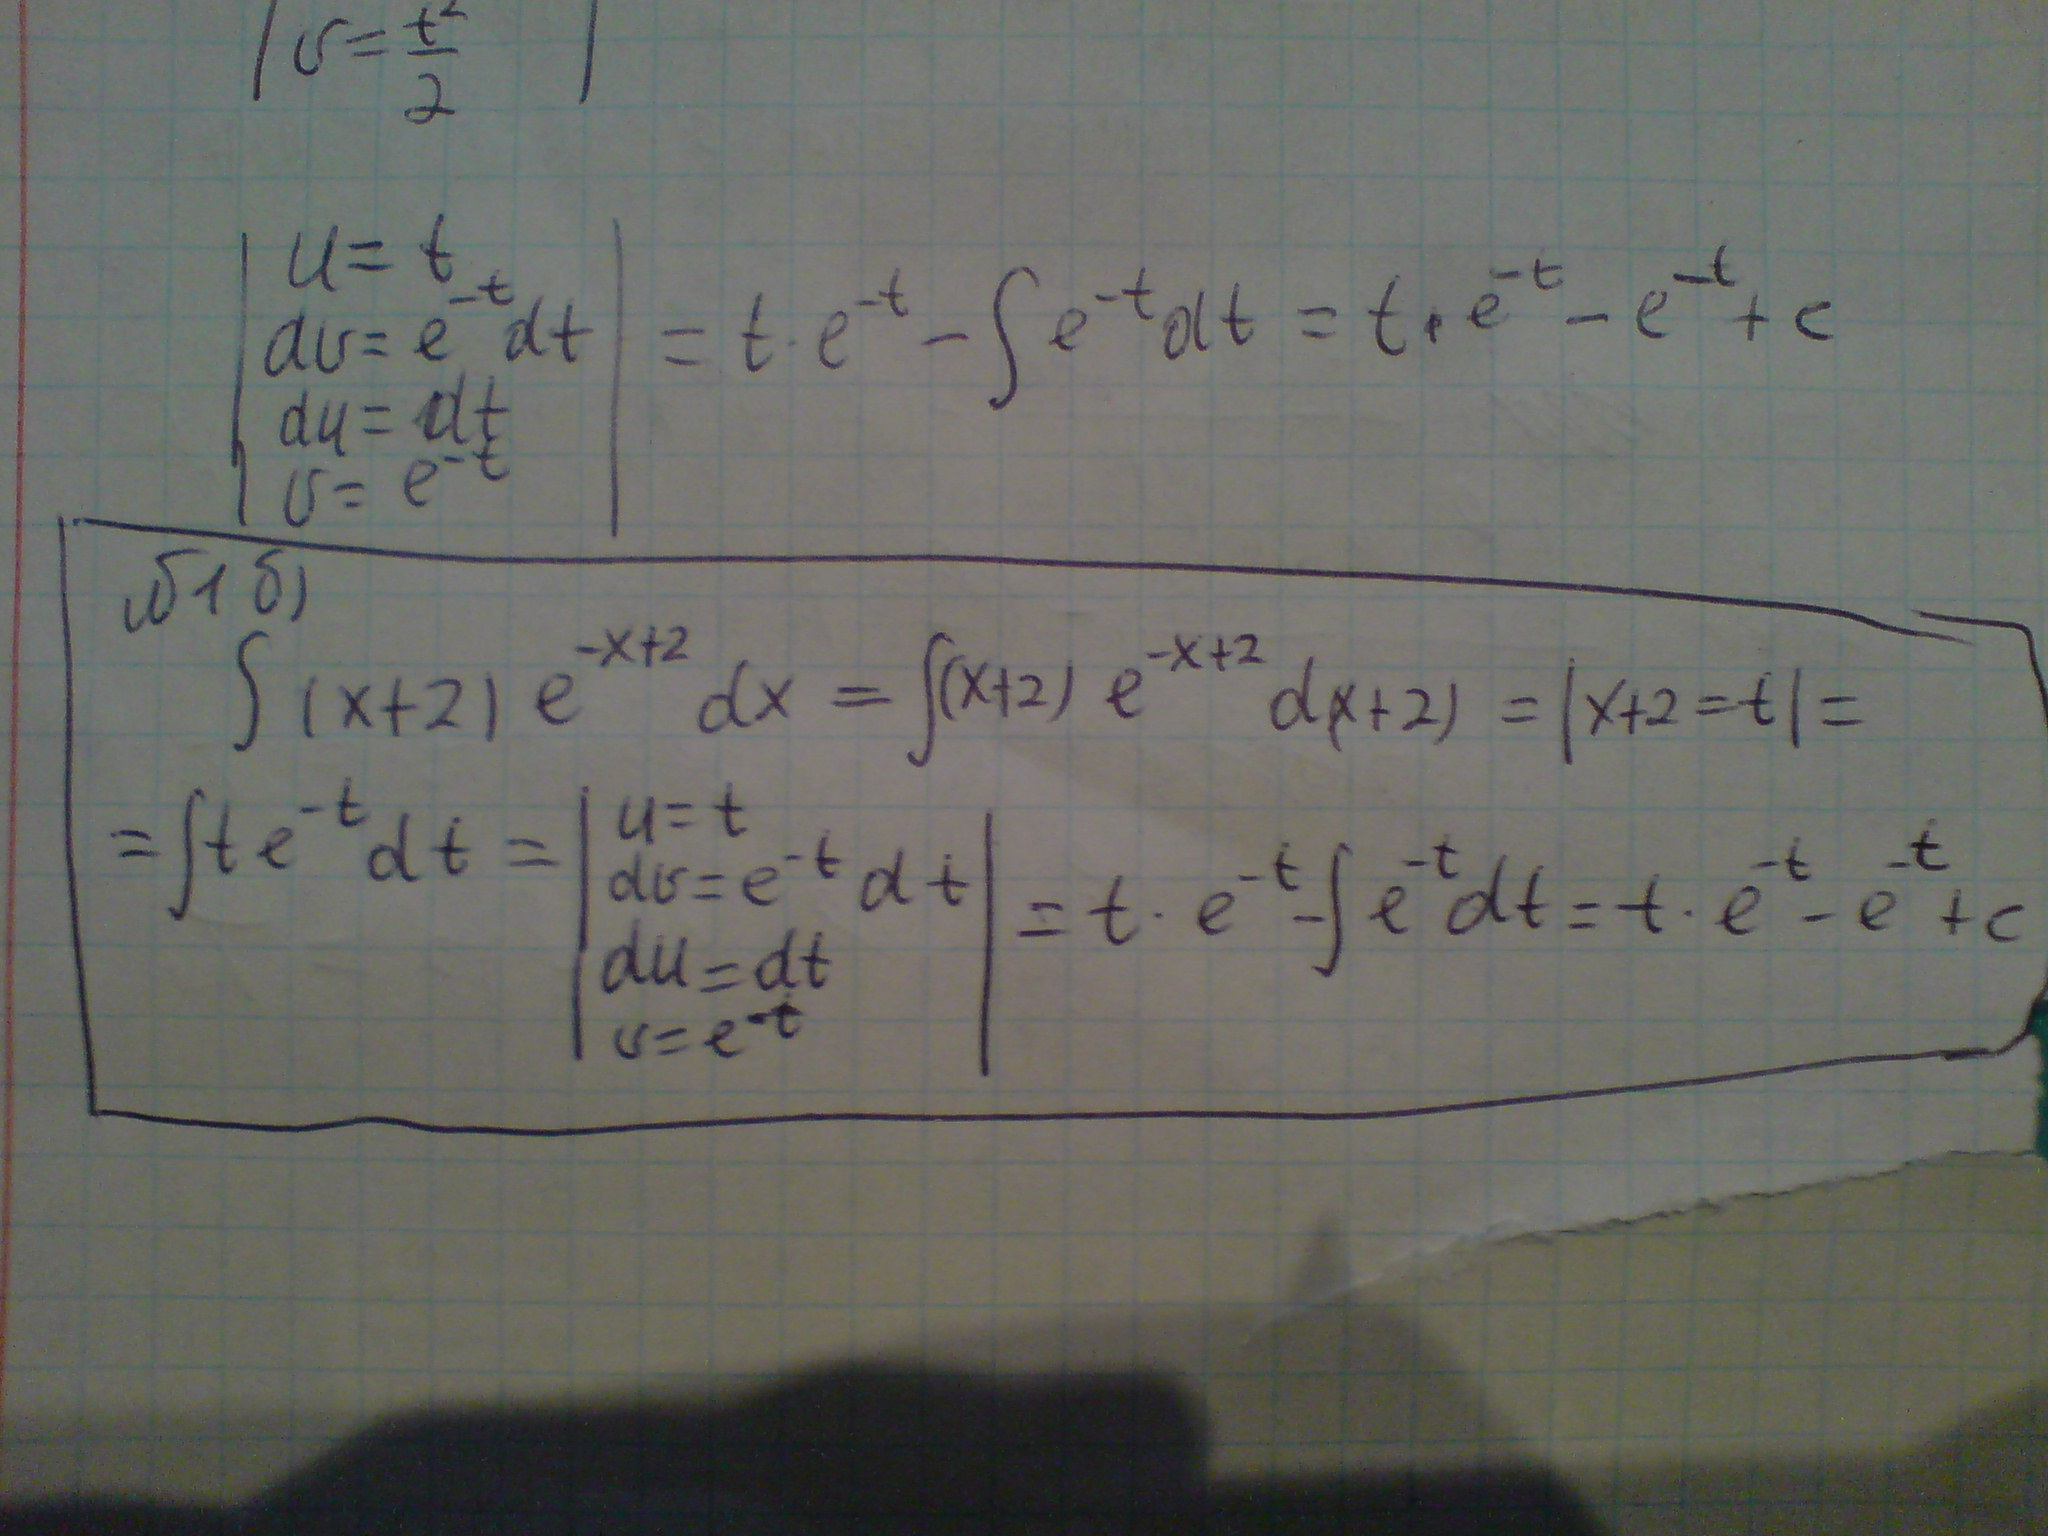 v = t²/2
u = t
dv = e^{-t} dt
du = dt
v = e^{-t}
= t · e^{-t} - ∫ e^{-t} dt = t · e^{-t} - e^{-t} + c
№1 б)
∫ (x+2) e^{-x+2} dx = ∫(x+2) e^{-x+2} d(x+2) = |x+2=t| =
= ∫ t e^{-t} dt =
u = t
dv = e^{-t} dt
du = dt
v = e^{-t}
= t · e^{-t} - ∫ e^{-t} dt = t · e^{-t} - e^{-t} + c